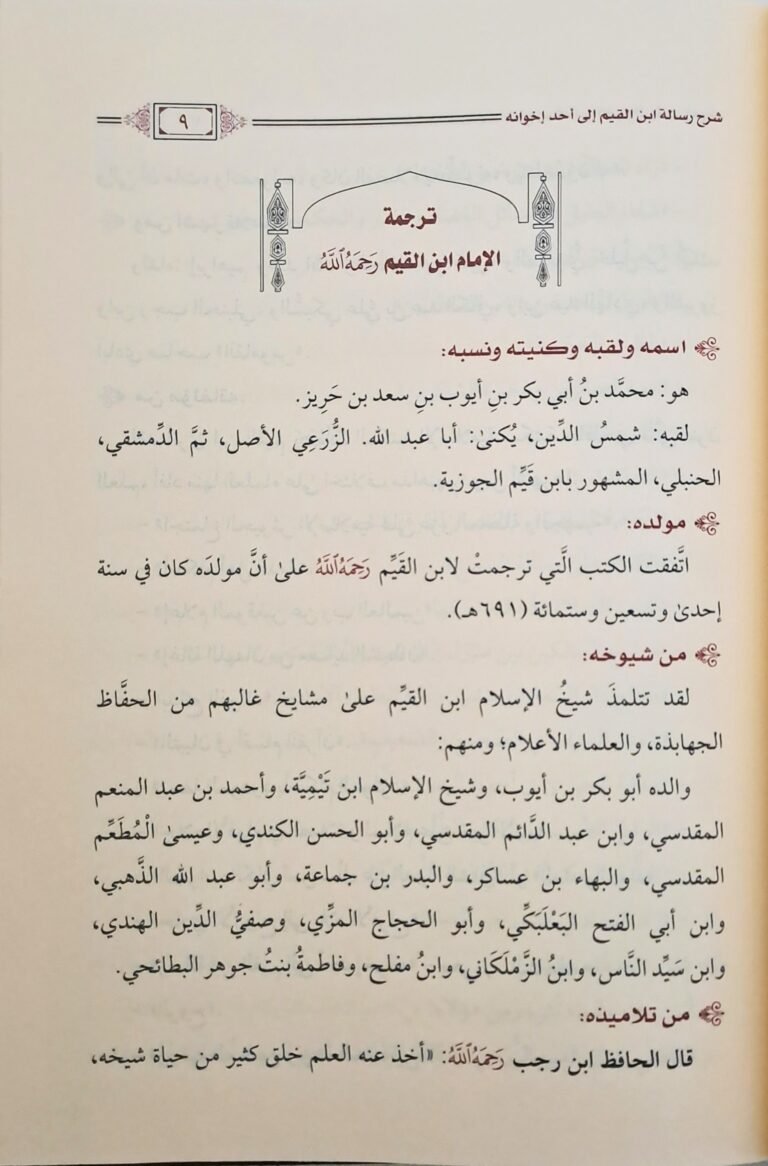 شرح رسالة ابن القيم إلى أحد إخوانه
٩
ترجمة
الإمام ابن القيم رَحِمَهُ ٱللَّهُ
اسمه ولقبه وكنيته ونسبه:
هو: محمَّد بنُ أبي بكر بنِ أيوب بنِ سعد بن حَرِيز.
لقبه: شمسُ الدِّين، يُكنىٰ: أبا عبد الله. الزُّرَعِي الأصل، ثمَّ الدِّمشقي،
الحنبلي، المشهور بابن قَيِّم الجوزية.
مولده:
اتَّفقت الكتب الَّتي ترجمتْ لابن القَيِّم رَحِمَهُ ٱللَّهُ علىٰ أنَّ مولدَه كان في سنة
إحدىٰ وتسعين وستمائة (٦٩١هـ).
من شيوخه:
لقد تتلمذَ شيخُ الإسلام ابن القيِّم علىٰ مشايخ غالبهم من الحفَّاظ
الجهابذة، والعلماء الأعلام؛ ومنهم:
والده أبو بكر بن أيوب، وشيخ الإسلام ابن تَيْمِيَّة، وأحمد بن عبد المنعم
المقدسي، وابن عبد الدَّائم المقدسي، وأبو الحسن الكندي، وعيسىٰ الْمُطَعِّم
المقدسي، والبهاء بن عساكر، والبدر بن جماعة، وأبو عبد الله الذَّهبي،
وابن أبي الفتح البَعْلَبَكِّي، وأبو الحجاج المزِّي، وصفيُّ الدِّين الهندي،
وابن سَيِّد النَّاس، وابنُ الزَّمْلَكَاني، وابنُ مفلح، وفاطمةُ بنتُ جوهر البطائحي.
من تلاميذه:
قال الحافظ ابن رجب رَحِمَهُ ٱللَّهُ: «أخذ عنه العلم خلق كثير من حياة شيخه،